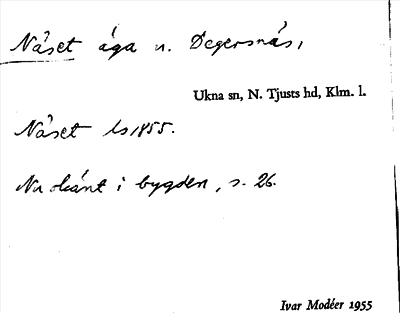 Näset äga u. Degersnäs,
Ukna sn, N. Tjusts hd, Klm. l.
Näset ls 1855.
Nu okänt i bygden, s. 26.
Ivar Modéer 1955